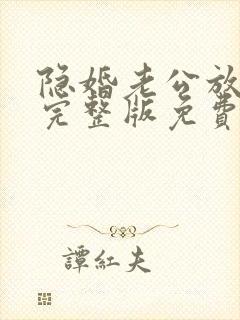 隐婚老公放
完整版免費
譚紅夫